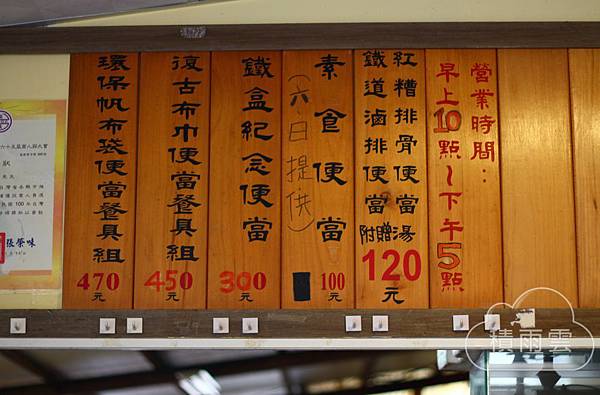 營業時間:
早上10點～下午5點
紅糟排骨便當
鐵道滷排便當
附贈湯
120元
素食便當
(六、日提供)
100元
鐵盒紀念便當
300元
復古布巾便當餐具組
450元
環保帆布袋便當餐具組
470元
狀
張榮味
積雨雲